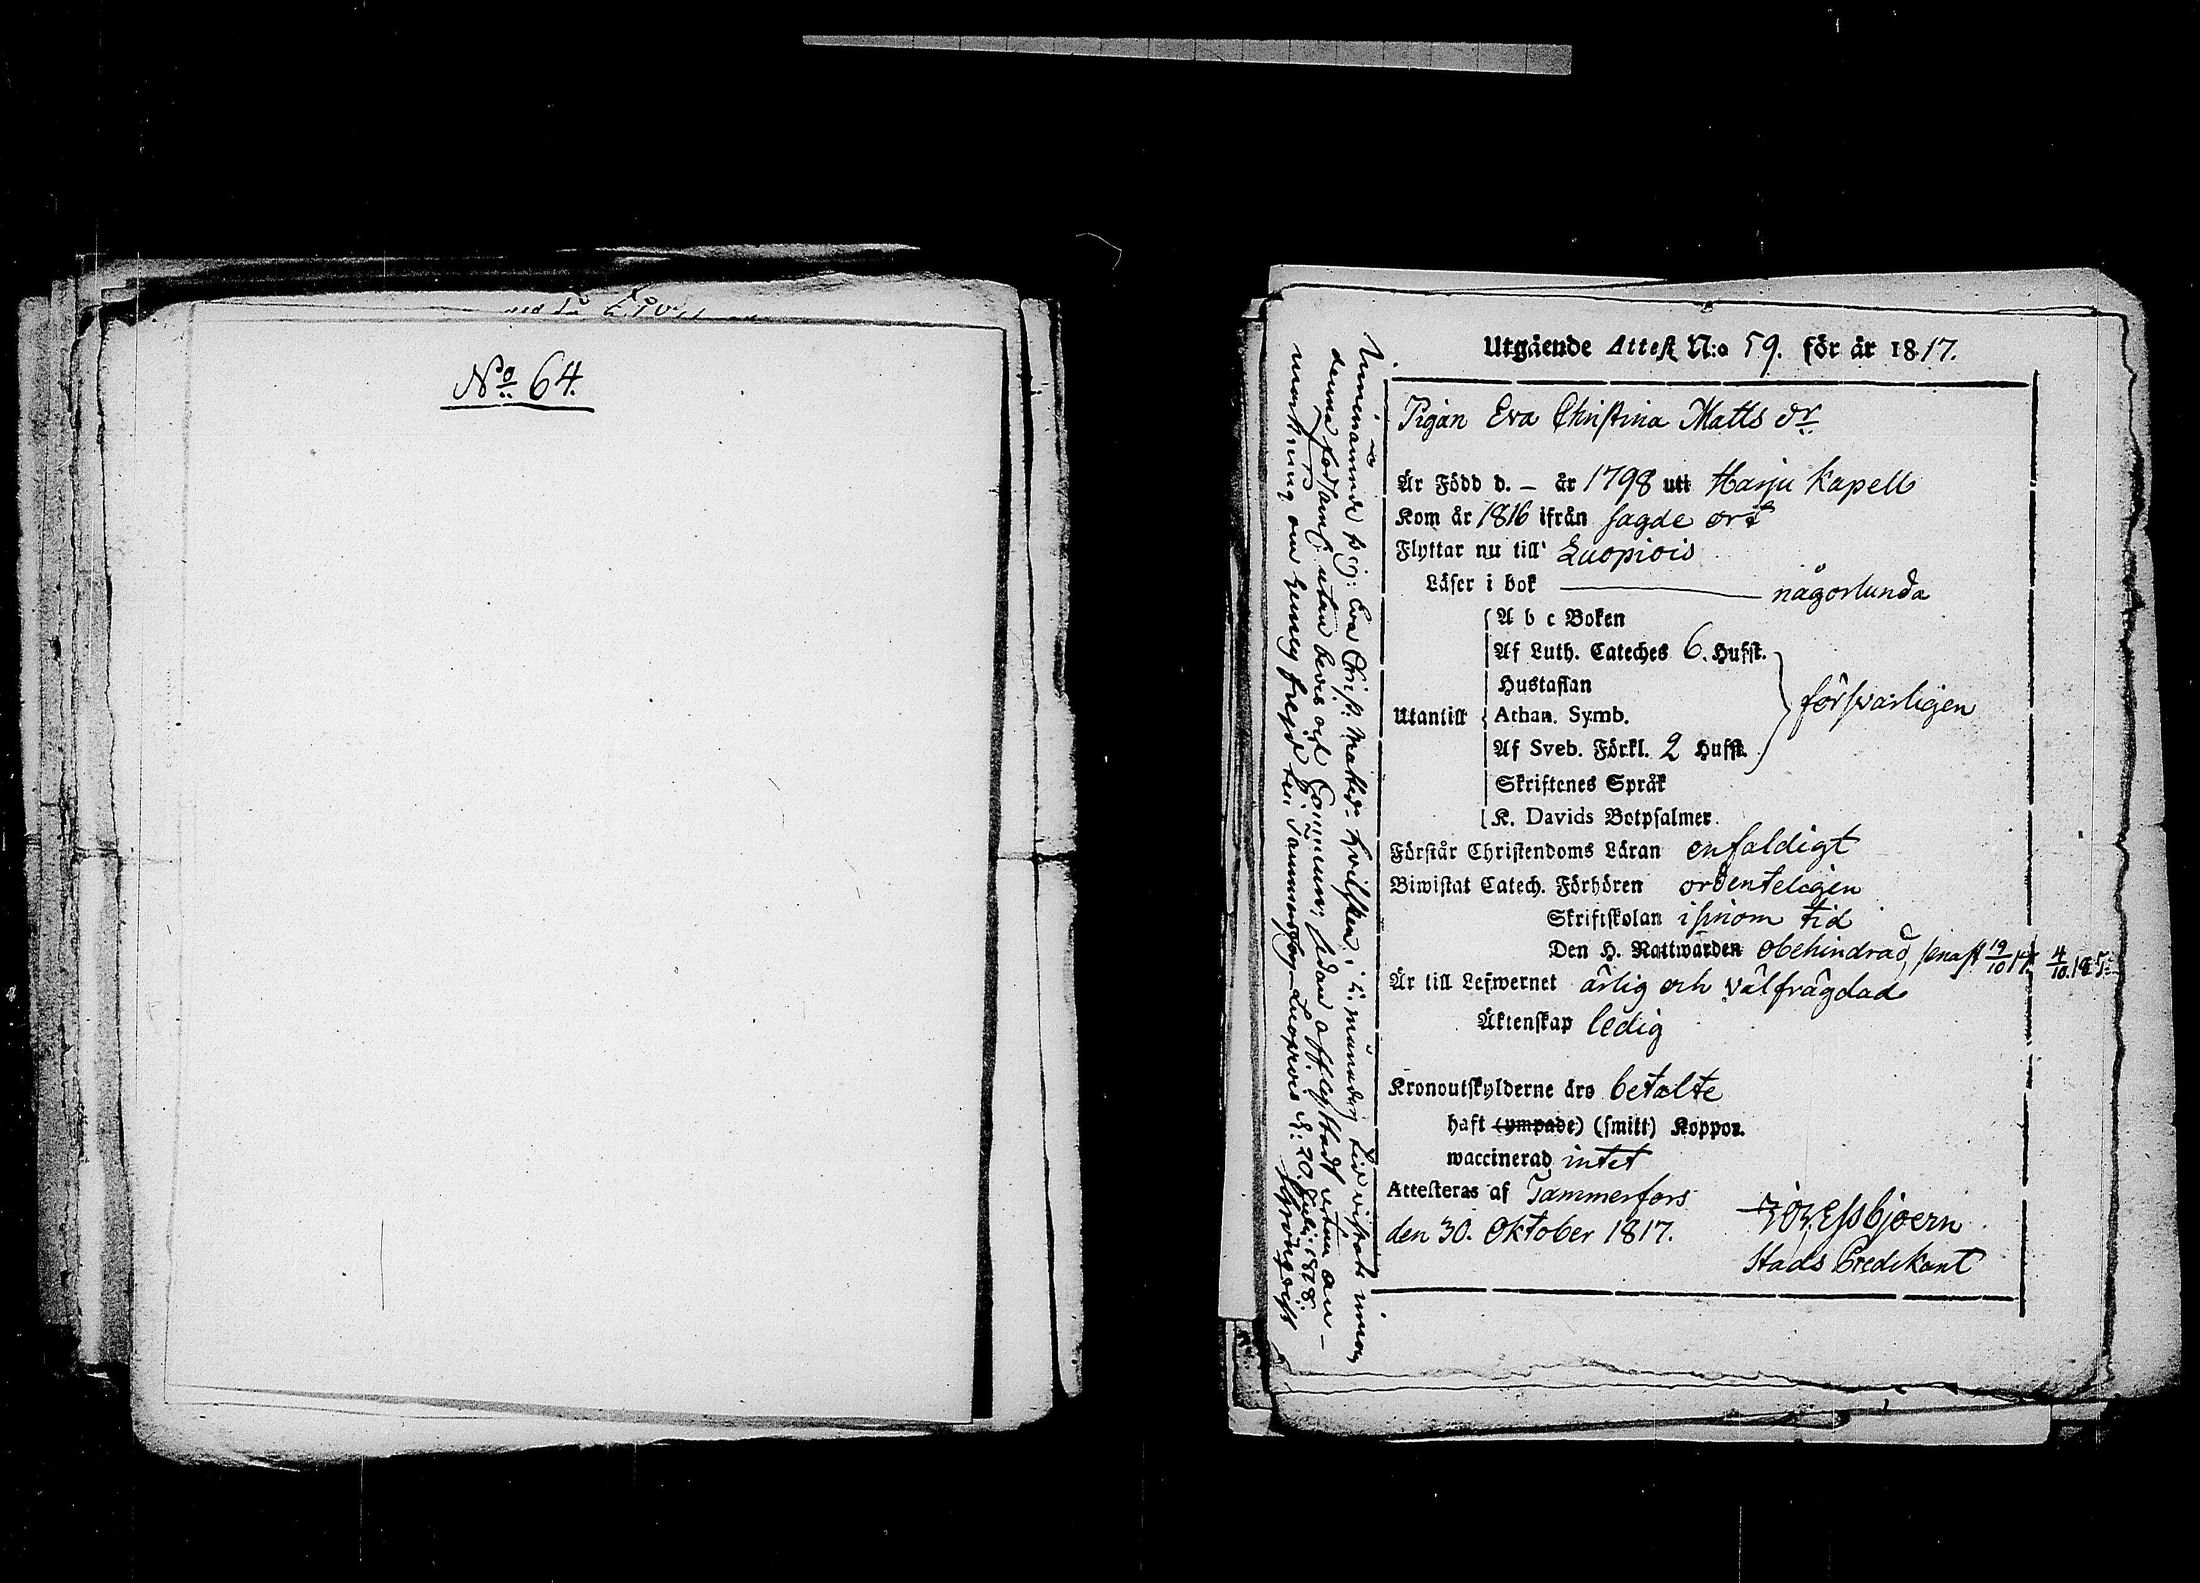 No 64.
Utgående Attest N:o 59. för år 1817.
Pigan Eva Christina Matts dr
Är Född d. – år 1798 uti Harju Kapell
Kom år 1816 ifrån sagde ort
Flyttar nu till Luopiois
Läser i bok någorlunda
A b c Boken
Af Luth. Cateches 6. Hufst.
Hustaflan
Utantill Athan. Symb. försvarligen
Af Sveb. Förkl. 2 Hufst.
Skriftenes Språk
K. Davids Botpsalmer.
Förstår Christendoms Läran enfaldigt
Biwistat Catech. Förhören ordenteligen
Skriftskolan i sinom tid
Den H. Nattwarden obehindrad, senast 19/10 17. 4/10. 18
Är till Lefwernet ärlig och välfrägdad
Äktenskap ledig
Kronoutskylderne äro betalte
haft (ympade) (smitt) Koppor.
waccinerad intet
Attesteras af Tammerfors
den 30. Oktober 1817. Essbjoern
Stads Predikant
Eva Christ. Mattsdr i 4 månader tid vistats
denna församl. utan bevis och sedan an-
märkning om hennes frejd till Luopiois d: 20 Julii 1818.